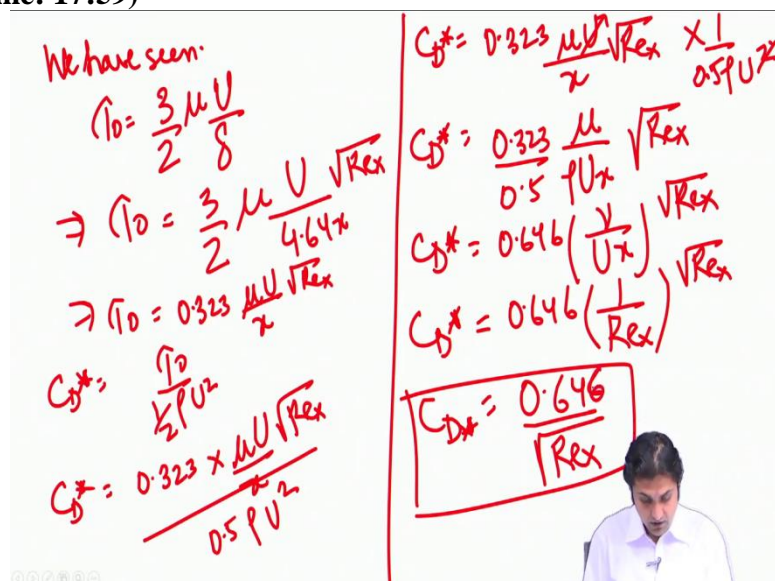 We have seen.
τ₀ = 3/2 μ U/δ
⇒ τ₀ = 3/2 μ U/4.64x √Rex
⇒ τ₀ = 0.323 μU/x √Rex
C_D* = τ₀ / ½ρU²
C_D* = 0.323 × μU/x √Rex / 0.5 ρU²
C_D* = 0.323 μU/x √Rex × 1/0.5ρU²
C_D* = 0.323/0.5 μ/ρUx √Rex
C_D* = 0.646 (ν/Ux) √Rex
C_D* = 0.646 (1/Rex) √Rex
C_D* = 0.646/√Rex